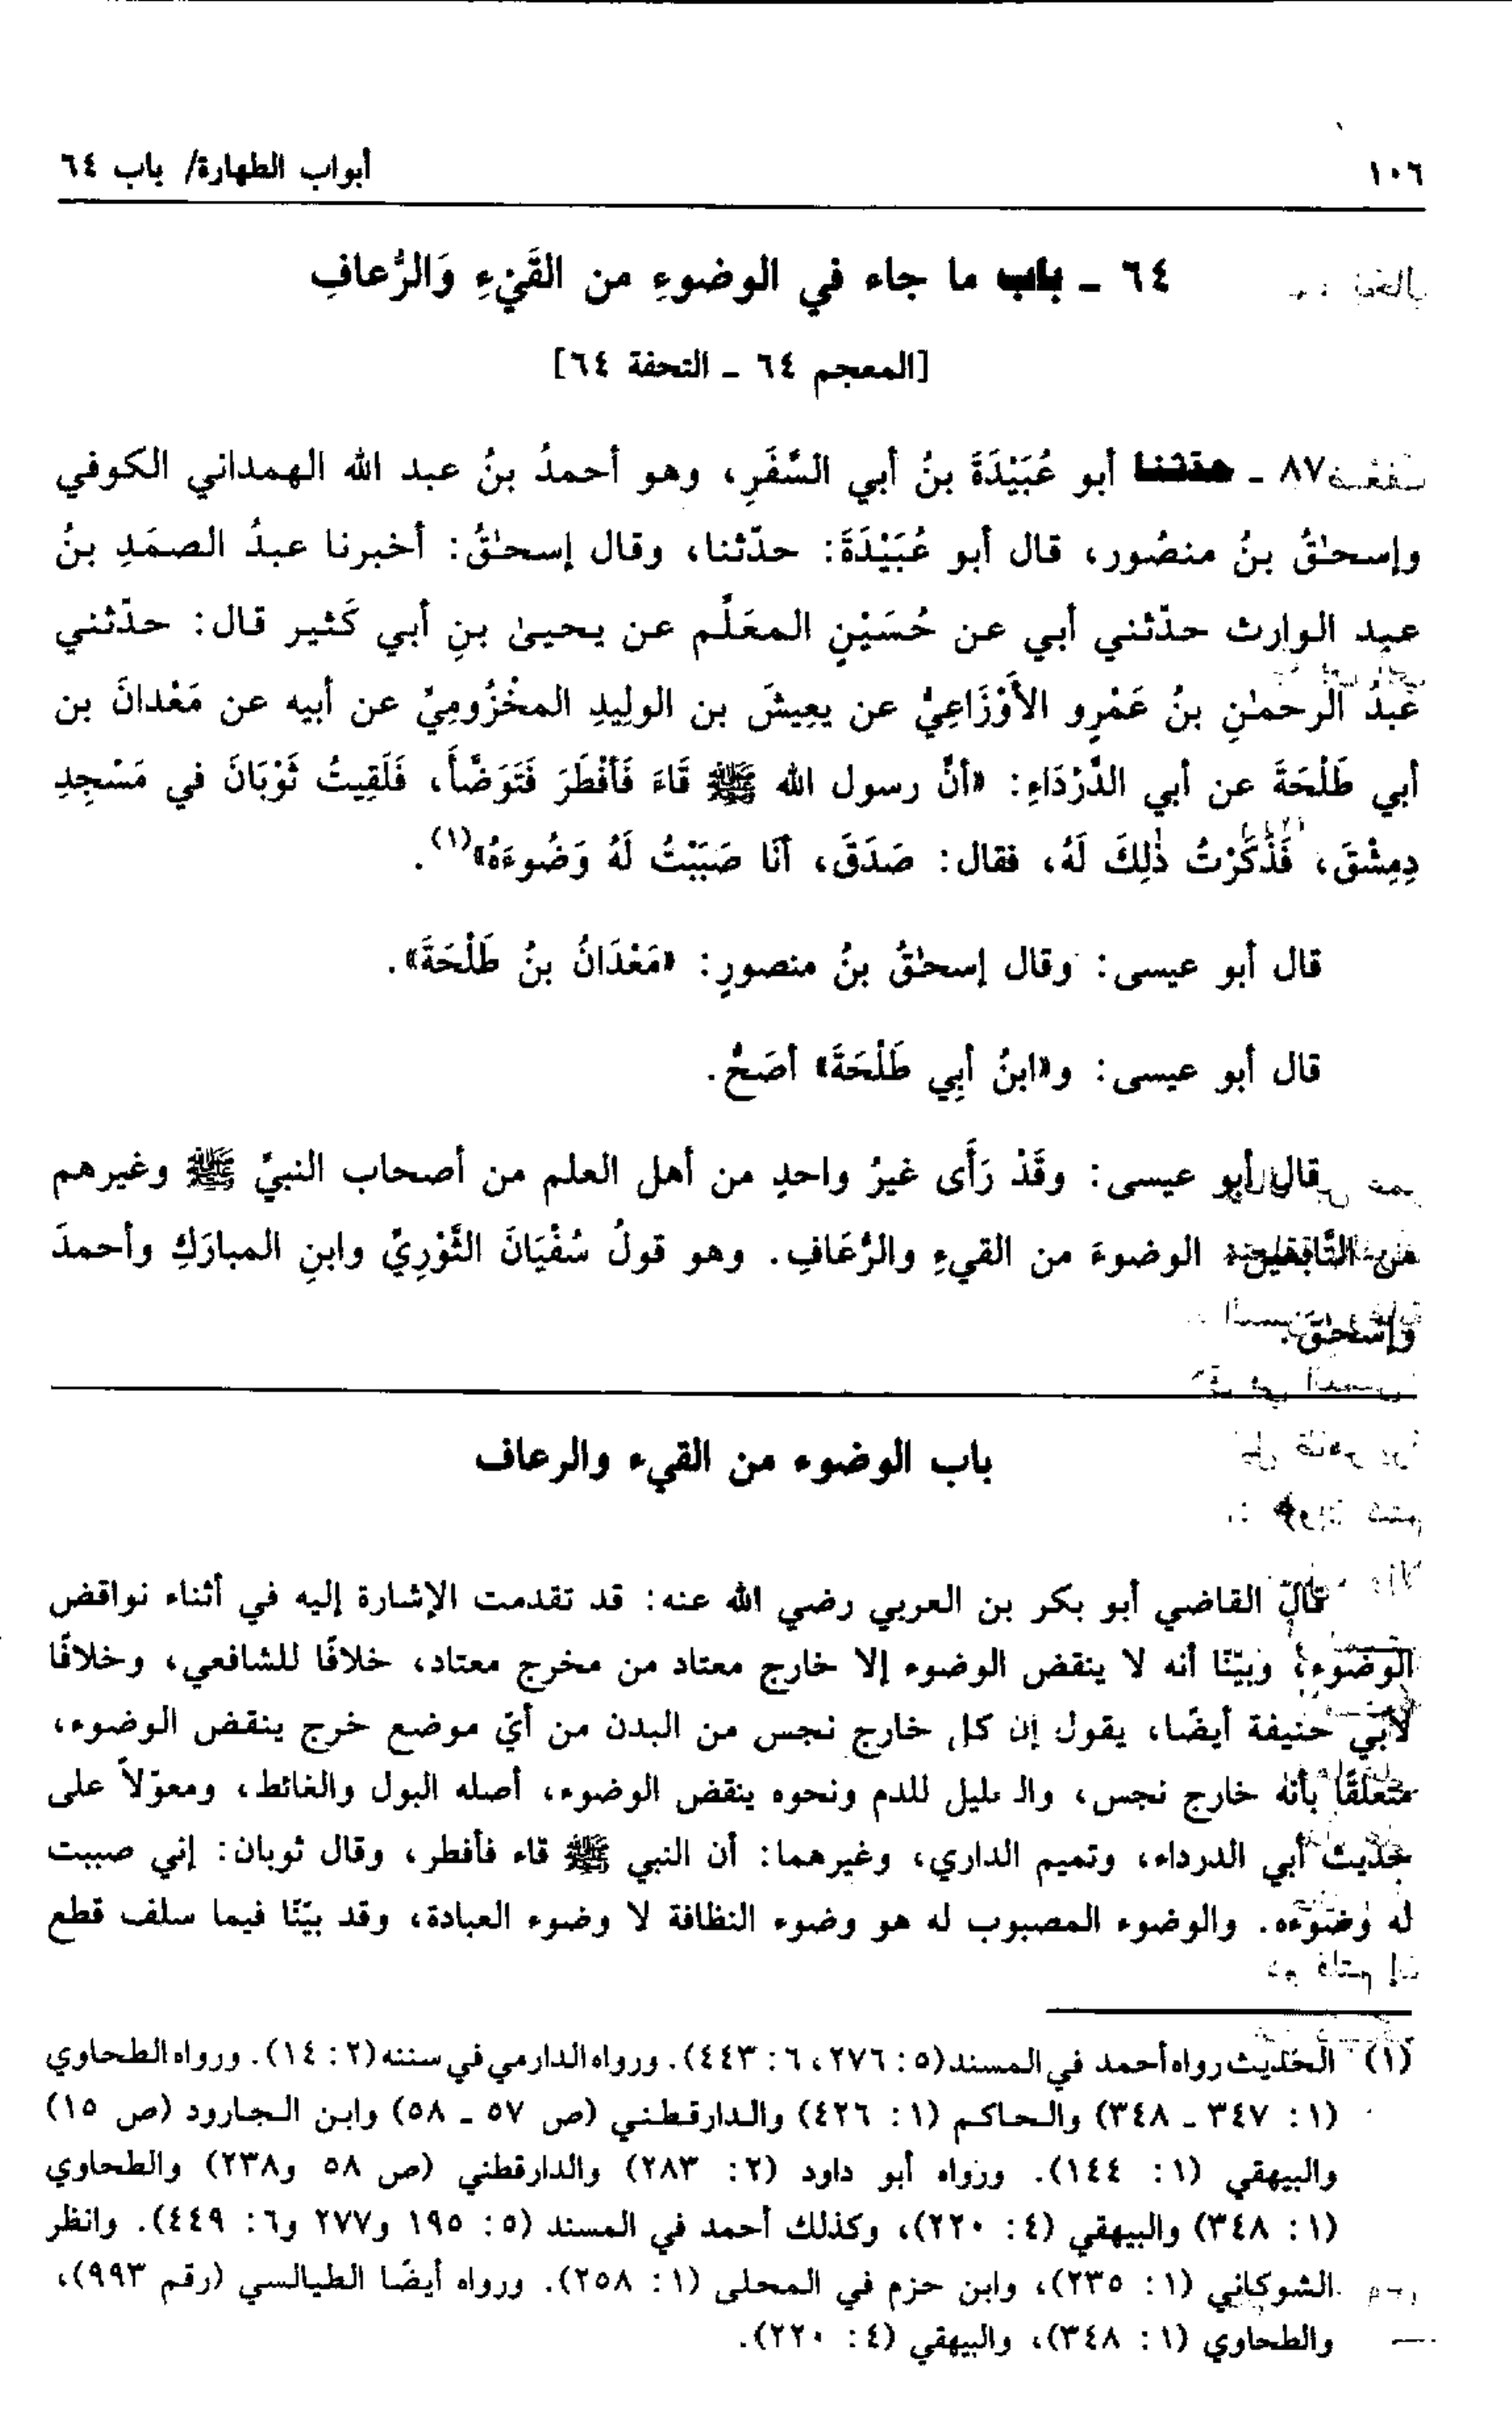 ١٠٦ أبواب الطهارة/ باب ٦٤
٦٤ - باب ما جاء في الوضوءِ من القَيْءِ وَالرُّعافِ
[المعجم ٦٤ - التحفة ٦٤]
٨٧ - حدثنا أبو عُبَيْدَةَ بنُ أبي السَّفَرِ، وهو أحمدُ بنُ عبد الله الهمداني الكوفي
وإسحٰقُ بنُ منصُور، قال أبو عُبَيْدَةَ: حدّثنا، وقال إسحٰقُ: أخبرنا عبدُ الصمَدِ بنُ
عبد الوارث حدّثني أبي عن حُسَيْنٍ المعَلِّم عن يحيىٰ بنِ أبي كَثير قال: حدّثني
عَبدُ الرحمٰنِ بنُ عَمْرٍو الأَوْزَاعِيُّ عن يعِيشَ بن الولِيدِ المخْزُومِيِّ عن أبيه عن مَعْدانَ بن
أبي طَلْحَةَ عن أبي الدَّرْدَاءِ: «أنَّ رسول الله ﷺ قَاءَ فَأفْطَرَ فَتَوَضَّأَ، فَلَقِيتُ ثَوْبَانَ في مَسْجِدِ
دِمِشْقَ، فَذَكَرْتُ ذٰلِكَ لَهُ، فقال: صَدَقَ، أنَا صَبَبْتُ لَهُ وَضُوءَهُ»(١).
قال أبو عيسى: وقال إسحٰقُ بنُ منصورٍ: «مَعْدَانُ بنُ طَلْحَةَ».
قال أبو عيسى: و«ابنُ أبِي طَلْحَةَ» أصَحُّ.
قال أبو عيسى: وقَدْ رَأَى غيرُ واحدٍ من أهل العلم من أصحاب النبيِّ ﷺ وغيرهم
من التَّابعين: الوضوءَ من القيءِ والرُّعَافِ. وهو قولُ سُفْيَانَ الثَّوْرِيِّ وابنِ المبارَكِ وأحمدَ
وإسْحٰقَ.
باب الوضوء من القيء والرعاف
قال القاضي أبو بكر بن العربي رضي الله عنه: قد تقدمت الإشارة إليه في أثناء نواقض
الوضوء، وبيّنّا أنه لا ينقض الوضوء إلا خارج معتاد من مخرج معتاد، خلافًا للشافعي، وخلافًا
لأبي حنيفة أيضًا، يقول إن كل خارج نجس من البدن من أيّ موضع خرج ينقض الوضوء،
متعلقًا بأنه خارج نجس، والدليل للدم ونحوه ينقض الوضوء، أصله البول والغائط، ومعوّلاً على
حديث أبي الدرداء، وتميم الداري، وغيرهما: أن النبي ﷺ قاء فأفطر، وقال ثوبان: إني صببت
له وضوءه. والوضوء المصبوب له هو وضوء النظافة لا وضوء العبادة، وقد بيّنّا فيما سلف قطع
(١) الحديث رواه أحمد في المسند (٥: ٢٧٦، ٦: ٤٤٣). ورواه الدارمي في سننه (٢: ١٤). ورواه الطحاوي
(١: ٣٤٧ - ٣٤٨) والحاكم (١: ٤٢٦) والدارقطني (ص ٥٧ - ٥٨) وابن الجارود (ص ١٥)
والبيهقي (١: ١٤٤). ورواه أبو داود (٢: ٢٨٣) والدارقطني (ص ٥٨ و٢٣٨) والطحاوي
(١: ٣٤٨) والبيهقي (٤: ٢٢٠)، وكذلك أحمد في المسند (٥: ١٩٥ و٢٧٧ و٦: ٤٤٩). وانظر
الشوكاني (١: ٢٣٥)، وابن حزم في المحلى (١: ٢٥٨). ورواه أيضًا الطيالسي (رقم ٩٩٣)،
والطحاوي (١: ٣٤٨)، والبيهقي (٤: ٢٢٠).